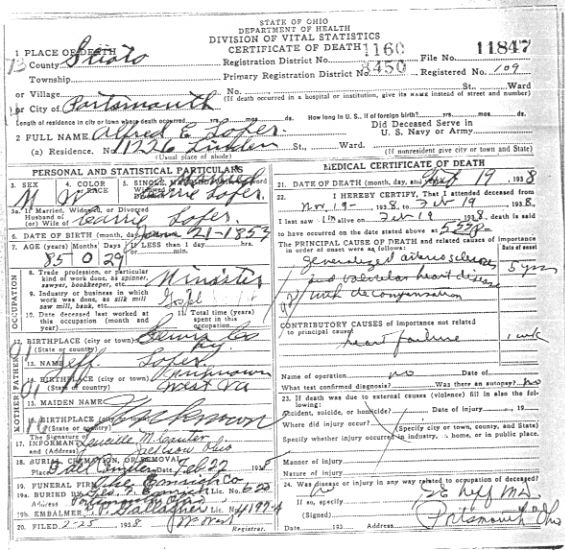 STATE OF OHIO
DEPARTMENT OF HEALTH
DIVISION OF VITAL STATISTICS
CERTIFICATE OF DEATH
1 PLACE OF DEATH
County Scioto
Registration District No. 1160 File No. 11847
Township
Primary Registration District No. 8450 Registered No. 109
or Village No. St., Ward
or City of Portsmouth (If death occurred in a hospital or institution, give its NAME instead of street and number)
Length of residence in city or town where death occurred yrs. mos. ds. How long in U. S., if of foreign birth? yrs. mos. ds.
2 FULL NAME Alfred E. Lofer. Did Deceased Serve in U. S. Navy or Army
(a) Residence. No. 1726 Linden St., Ward.
(Usual place of abode) (If nonresident give city or town and State)
PERSONAL AND STATISTICAL PARTICULARS
3. SEX M
4. COLOR OR RACE W
5. SINGLE, MARRIED, WIDOWED
5a. If Married, Widowed, or Divorced
Husband of
(or) Wife of Carrie Lofer.
6. DATE OF BIRTH Jan 21-1853
7. AGE (years) Months Days If LESS than 1 day, hrs.
85 0 29 or min.
OCCUPATION
8. Trade, profession, or particular kind of work done, as spinner, sawyer, bookkeeper, etc. Minister
9. Industry or business in which work was done, as silk mill saw mill, bank, etc. Gospel
10. Date deceased last worked at this occupation (month and year)
11. Total time (years) spent in this occupation
12. BIRTHPLACE (city or town)
(State or country) Ky
FATHER
13. NAME Jeff Lofer
14. BIRTHPLACE (city or town) Unknown
(State or country) West Va
MOTHER
15. MAIDEN NAME Unknown
16. BIRTHPLACE (city or town)
(State or country)
17. The Signature of INFORMANT Lucille M.
and (Address) Ohio
18. BURIAL, CREMATION, OR REMOVAL
Place Date Feb 22 1938
19. FUNERAL FIRM The Emrich Co
19a. BURIED BY Geo. Emrich Lic. No. 620
Address Portsmouth Ohio
19b. EMBALMER Gallagher Lic. No. 4197-A
20. FILED 2-25 1938 Registrar.
MEDICAL CERTIFICATE OF DEATH
21. DATE OF DEATH (month, day, and year) Feb 19 1938
22. I HEREBY CERTIFY, That I attended deceased from
Nov 19- 1938, to Feb 19 1938
I last saw him alive on Feb 19 1938, death is said
to have occurred on the date stated above at
The PRINCIPAL CAUSE OF DEATH and related causes of importance in order of onset were as follows: Date of onset
generalized arteriosclerosis 5 yrs
and valvular heart disease
with decompensation
CONTRIBUTORY CAUSES of importance not related to principal cause:
heart failure 1 wk
Name of operation no Date of
What test confirmed diagnosis? Was there an autopsy? no
23. If death was due to external causes (violence) fill in also the following:
Accident, suicide, or homicide? Date of injury 19
Where did injury occur? (Specify city or town, county, and State)
Specify whether injury occurred in industry, in home, or in public place.
Manner of injury
Nature of injury
24. Was disease or injury in any way related to occupation of deceased?
If so, specify
(Signed) Neff M.D.
Date 193 (Address) Portsmouth Ohio